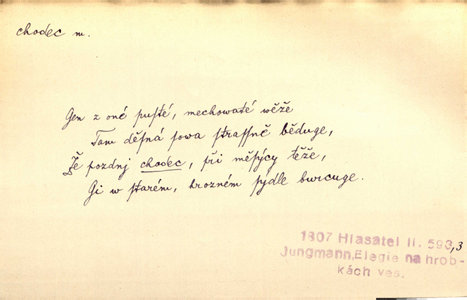 chodec m.
Gen z oné pusté, mechowaté wěže
Tam děsná sowa strassně běduge,
Že pozdnj chodec, při měsýcy těže,
Gi w starém, hrozném sýdle burcuge.
1807 Hlasatel II. 593,3
Jungmann, Elegie na hrob-
kách ves.